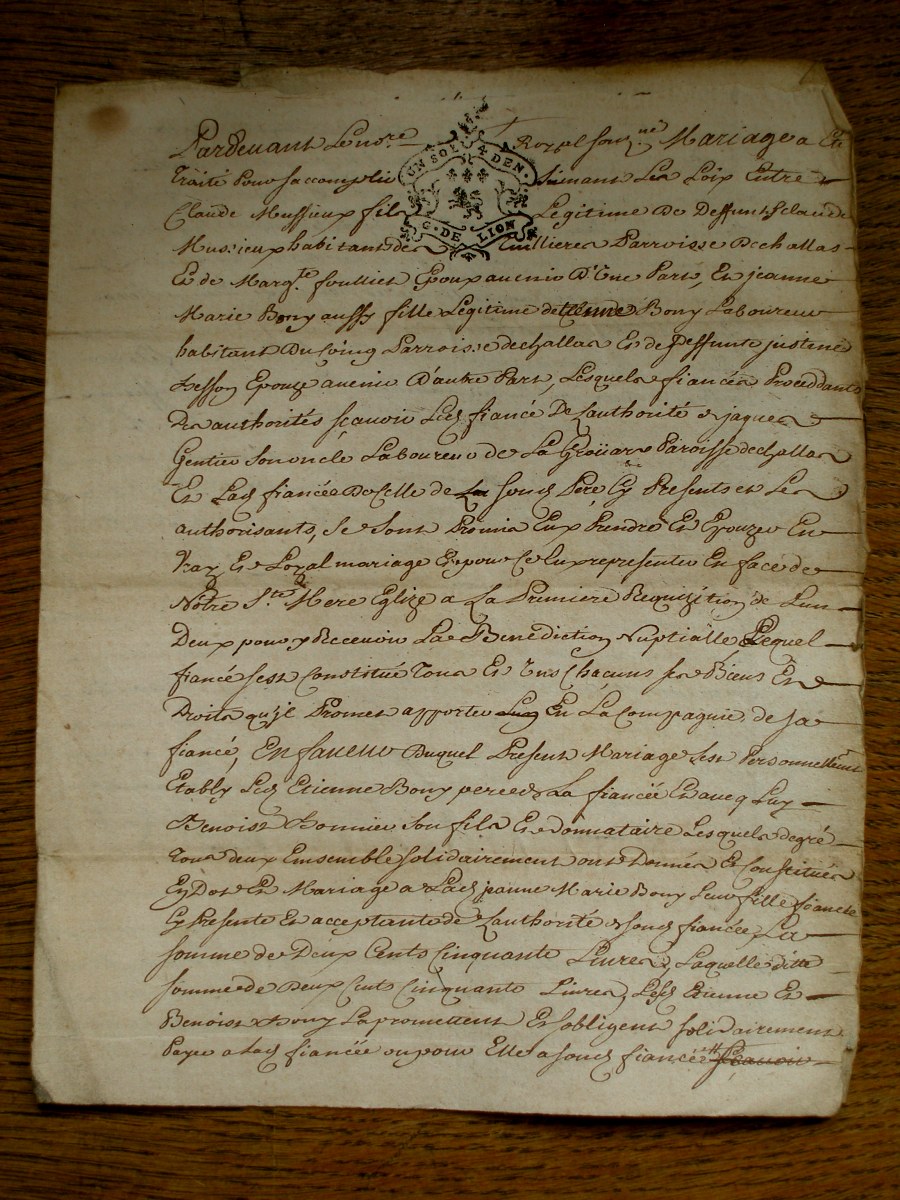 Pardevant Le no.re Royal sous.né Mariage a Eté
UN SOL 4 DEN.
G. DE LION
Traité Pour s'accomplir suivant Les Loix Entre
Claude Mussieux fils Legitime De Deffunt Claude
Mussieux habitant de Cuilliere Parroisse de challas
Et de Marg.te foullier Epoux avenir D'Une Part, Et jeanne
Marie Bony aussy fille Legitime de Etienne Bony Laboureur
habitant Du Coing Parroisse de challas Et de Deffunte justine
tesson Epouze avenir D'autre Part, Lesquels fiancés Proceddants
Des authorités sçavoir Led fiancé De L'authorité de jaques
Gentier son oncle Laboureur de La Groüare Paroisse de challas
Et Lad fiancée De Celle de sond Pere Cy Presents et Les
authorisants, se sont Promis Eux Prendre Et Epouzer En
Vray Et Loyal mariage Et pour Ce Eux representer En face de
Notre S.te Mere Eglize a La Premiere Requizition de L'un
Deux pour y Recevoir La Benediction Nuptialle Lequel
fiancé s'est Constitué Tous Et Uns Chacuns ses Biens Et
Droits qu'jl Promet apporter En La Compagnie de sa
fiancé, En faveur Duquel Present Mariage s'est Personnellement
Etably Led Etienne Bony pere de La fiancée Et avec Luy
Benoist Bonnier son fils Et donnataire Lesquels de gré
Tous deux Ensemble solidairement ont Donnés Et Constitués
En Dot Et Mariage a Lad jeanne Marie Bony Leur fille fiancée
Cy Presente Et acceptante de L'authorité de sond fiancée La
somme de Deux Cents Cinquante Livres, Laquelle ditte
somme de Deux Cents Cinquante Livres, Lesd Etienne Et
Benoist Bony La promettent Et s'obligent solidairement
Payer a Lad fiancée ou pour Elle a sond fiancée sçavoir